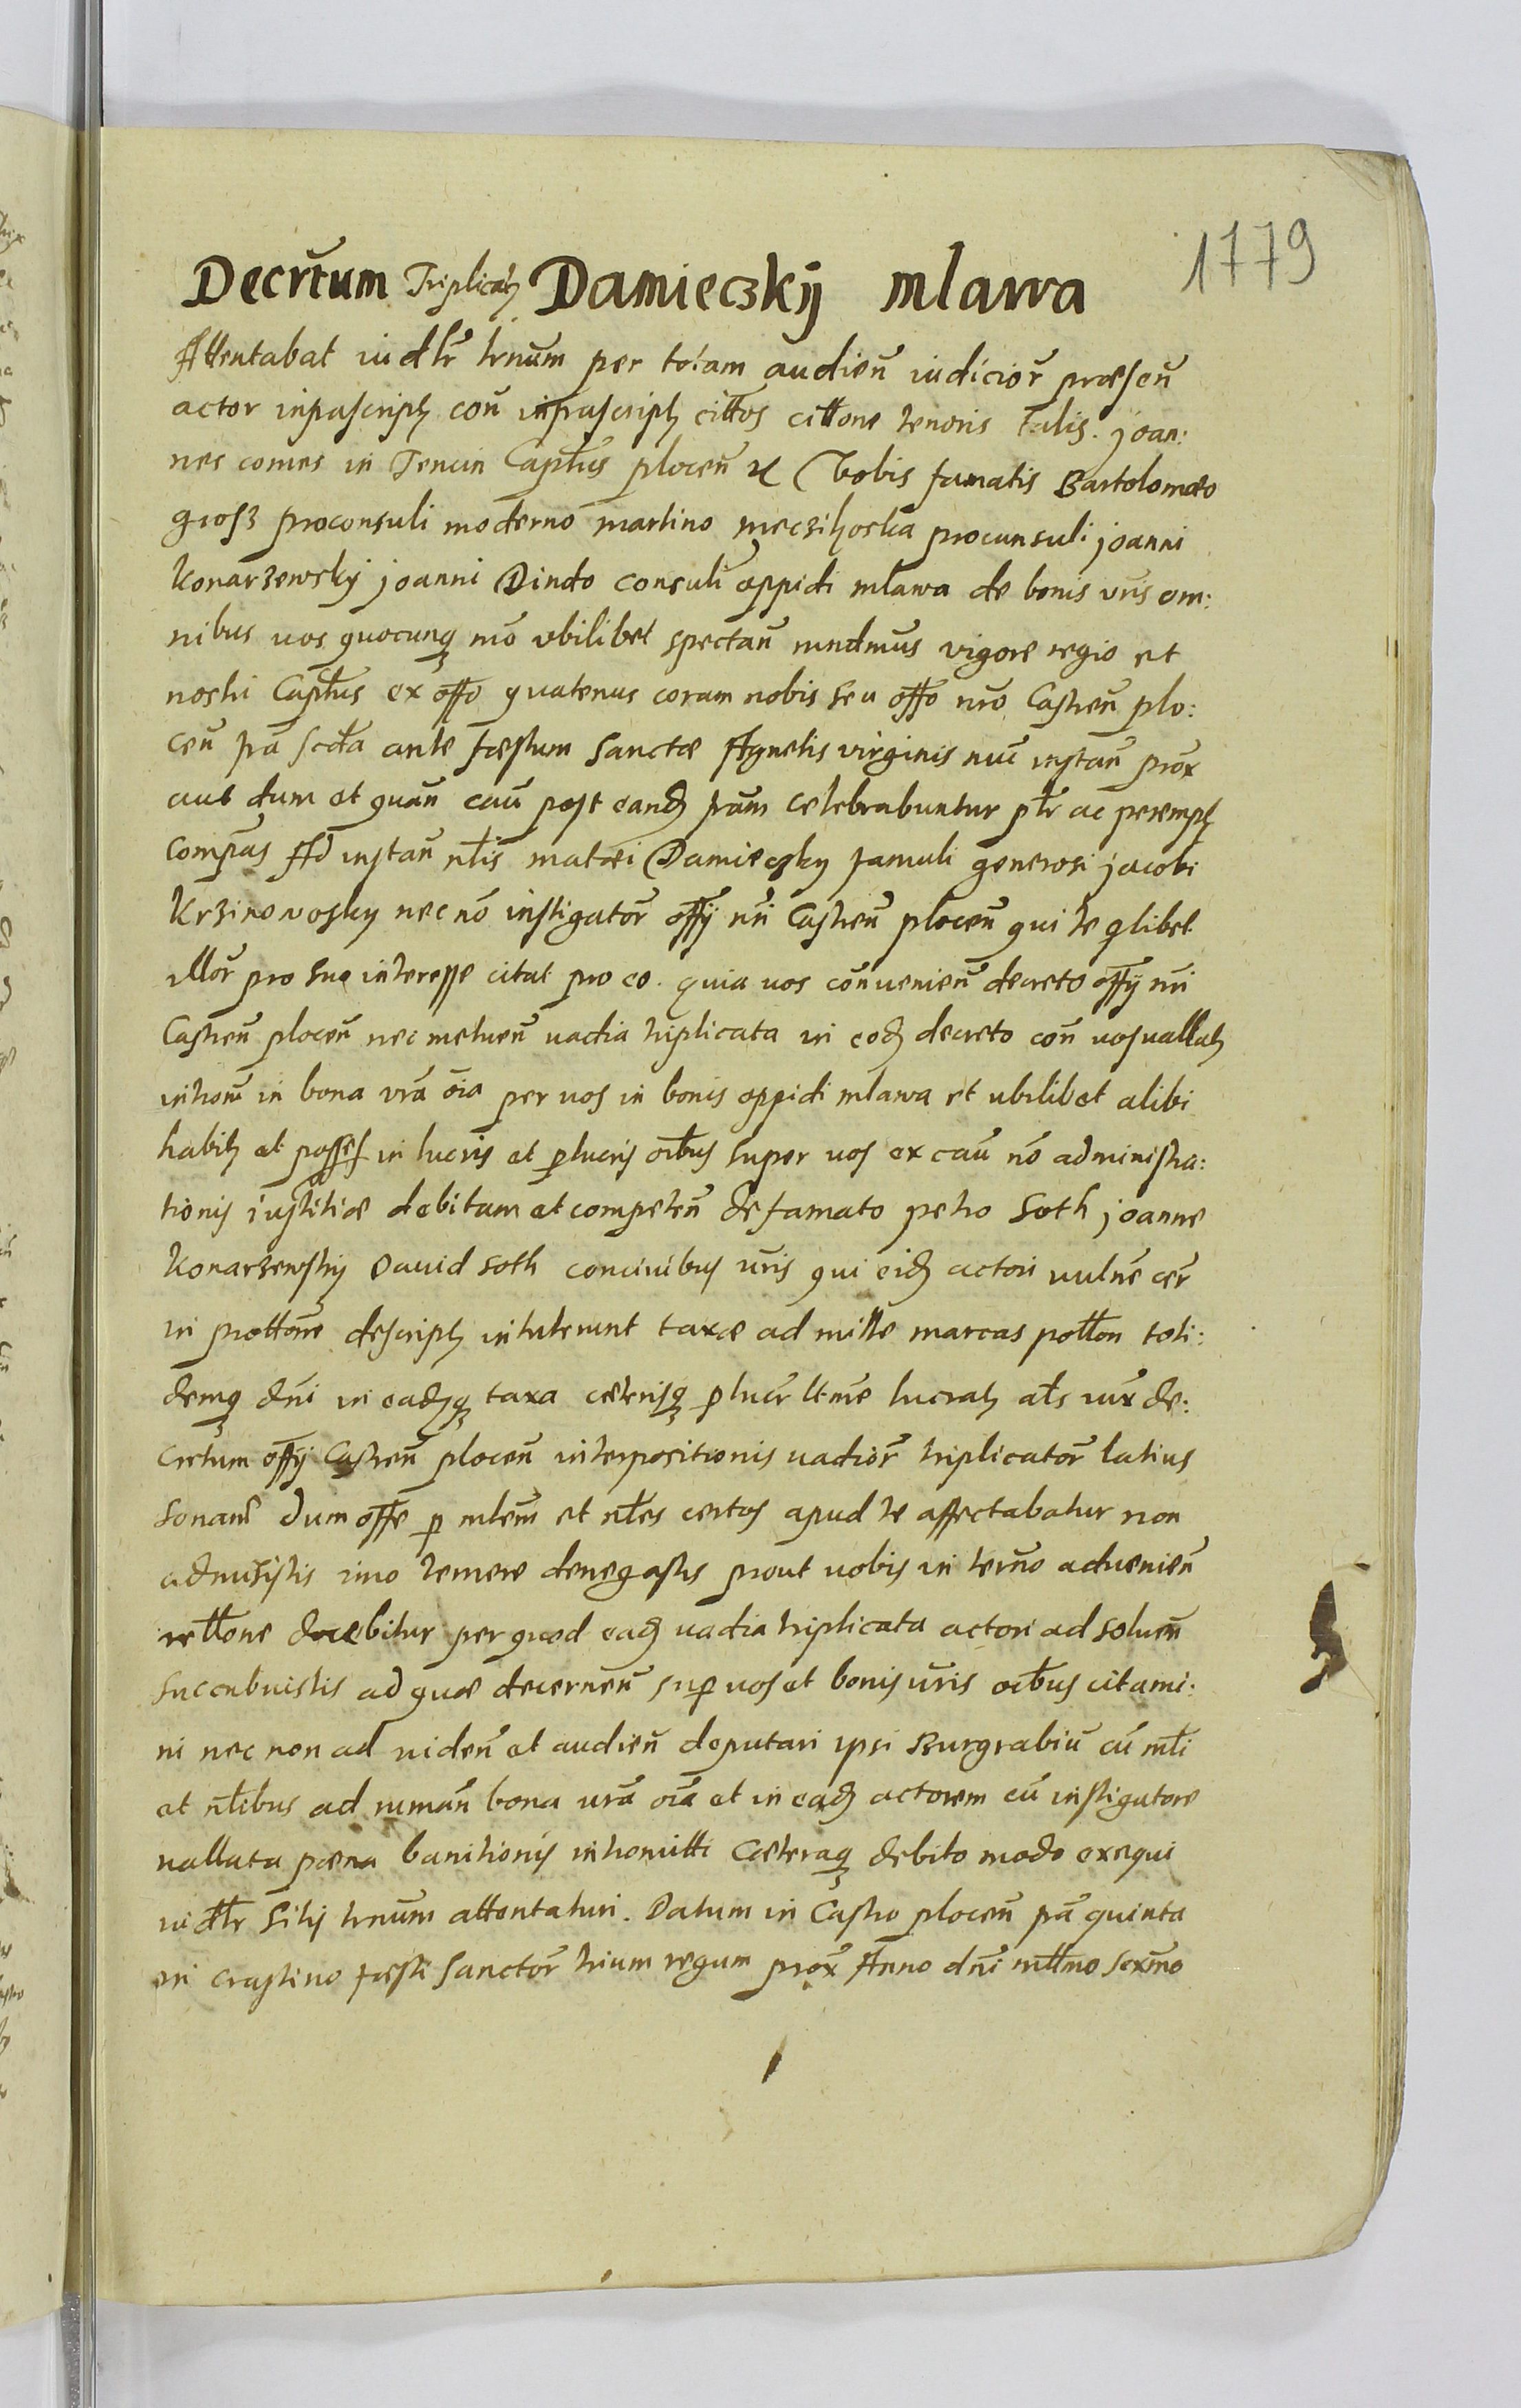 1779
Decrtum Triplicat Damieczkij mlawa
Attentabat iudlr trnum per totam audien iudicior præsen
actor infrascript con infrascript cittos cittone tenoris talis. joan:
nes comes in Tencin Captus plocen &c Vobis famatis Bartolomeo
grosz proconsuli moderno martino mecziħoska proconsuli joanni
Konarzewskj joanni Dindo consuli oppidi mlawa de bonis vris om:
nibus uos quocunq mo vbilibet spectan mndmus vigore regio et
nostri Captus ex offo quatenus coram nobis seu offo nro Castren plo:
cen fra scda ante fæstum Sanctæ Agnetis virginis nunc instan prox
aut dum et quan cau post eand fram celebrabuntur ptr ac perempt
compas Ad instan nlis matæi Damieczky famuli generosi jacobi
Krzinowosky nec no instigator offij nri Castren plocen qui te qlibet
illor pro suo interesse citat pro eo. quia uos conuenien decreto offij nri
Castren plocen nec metuen uadia triplicata in eod decreto con uos uallat
introm in bona vra oia per uos in bonis oppidi mlawa et ubilibet alibi
habit et posses in lucris et plucris oibus super uos ex cau no administra:
tionis iustitiæ debitam et competen de famato petro Soth joanne
Konarzewskij Dauid soth conciuibus uris qui eid actori uulne cer
in prottone descript intulerunt taxæ ad mille marcas polton toti:
demq dni in eadq taxa cæterisq plucr ltme lucrat als iux de:
cretum offij Castren plocen interpositionis uadior triplicator latius
sonan dum offe p mlem et nles certos apud te affectabatur non
admisistis imo temere denegastis prout uobis in termo aduenien
rettone docebitur per quod ead uadia triplicata actori ad soluen
succubuistis ad quæ decernen sup uos et bonis uris oibus citami:
ni nec non ad uiden et audien deputari ipsi Burgrabiu cu mli
et nlibus ad ruman bona ura oia et in ead actorem cu instigatore
uallata pæna banitionis intromitti Cæteraq debito modo exequi
iudlr Sitij trnum attentaturi. Datum in Castro plocen fra quinta
in crastino fæsti Sanctor trium regum prox Anno dni mllmo sexmo